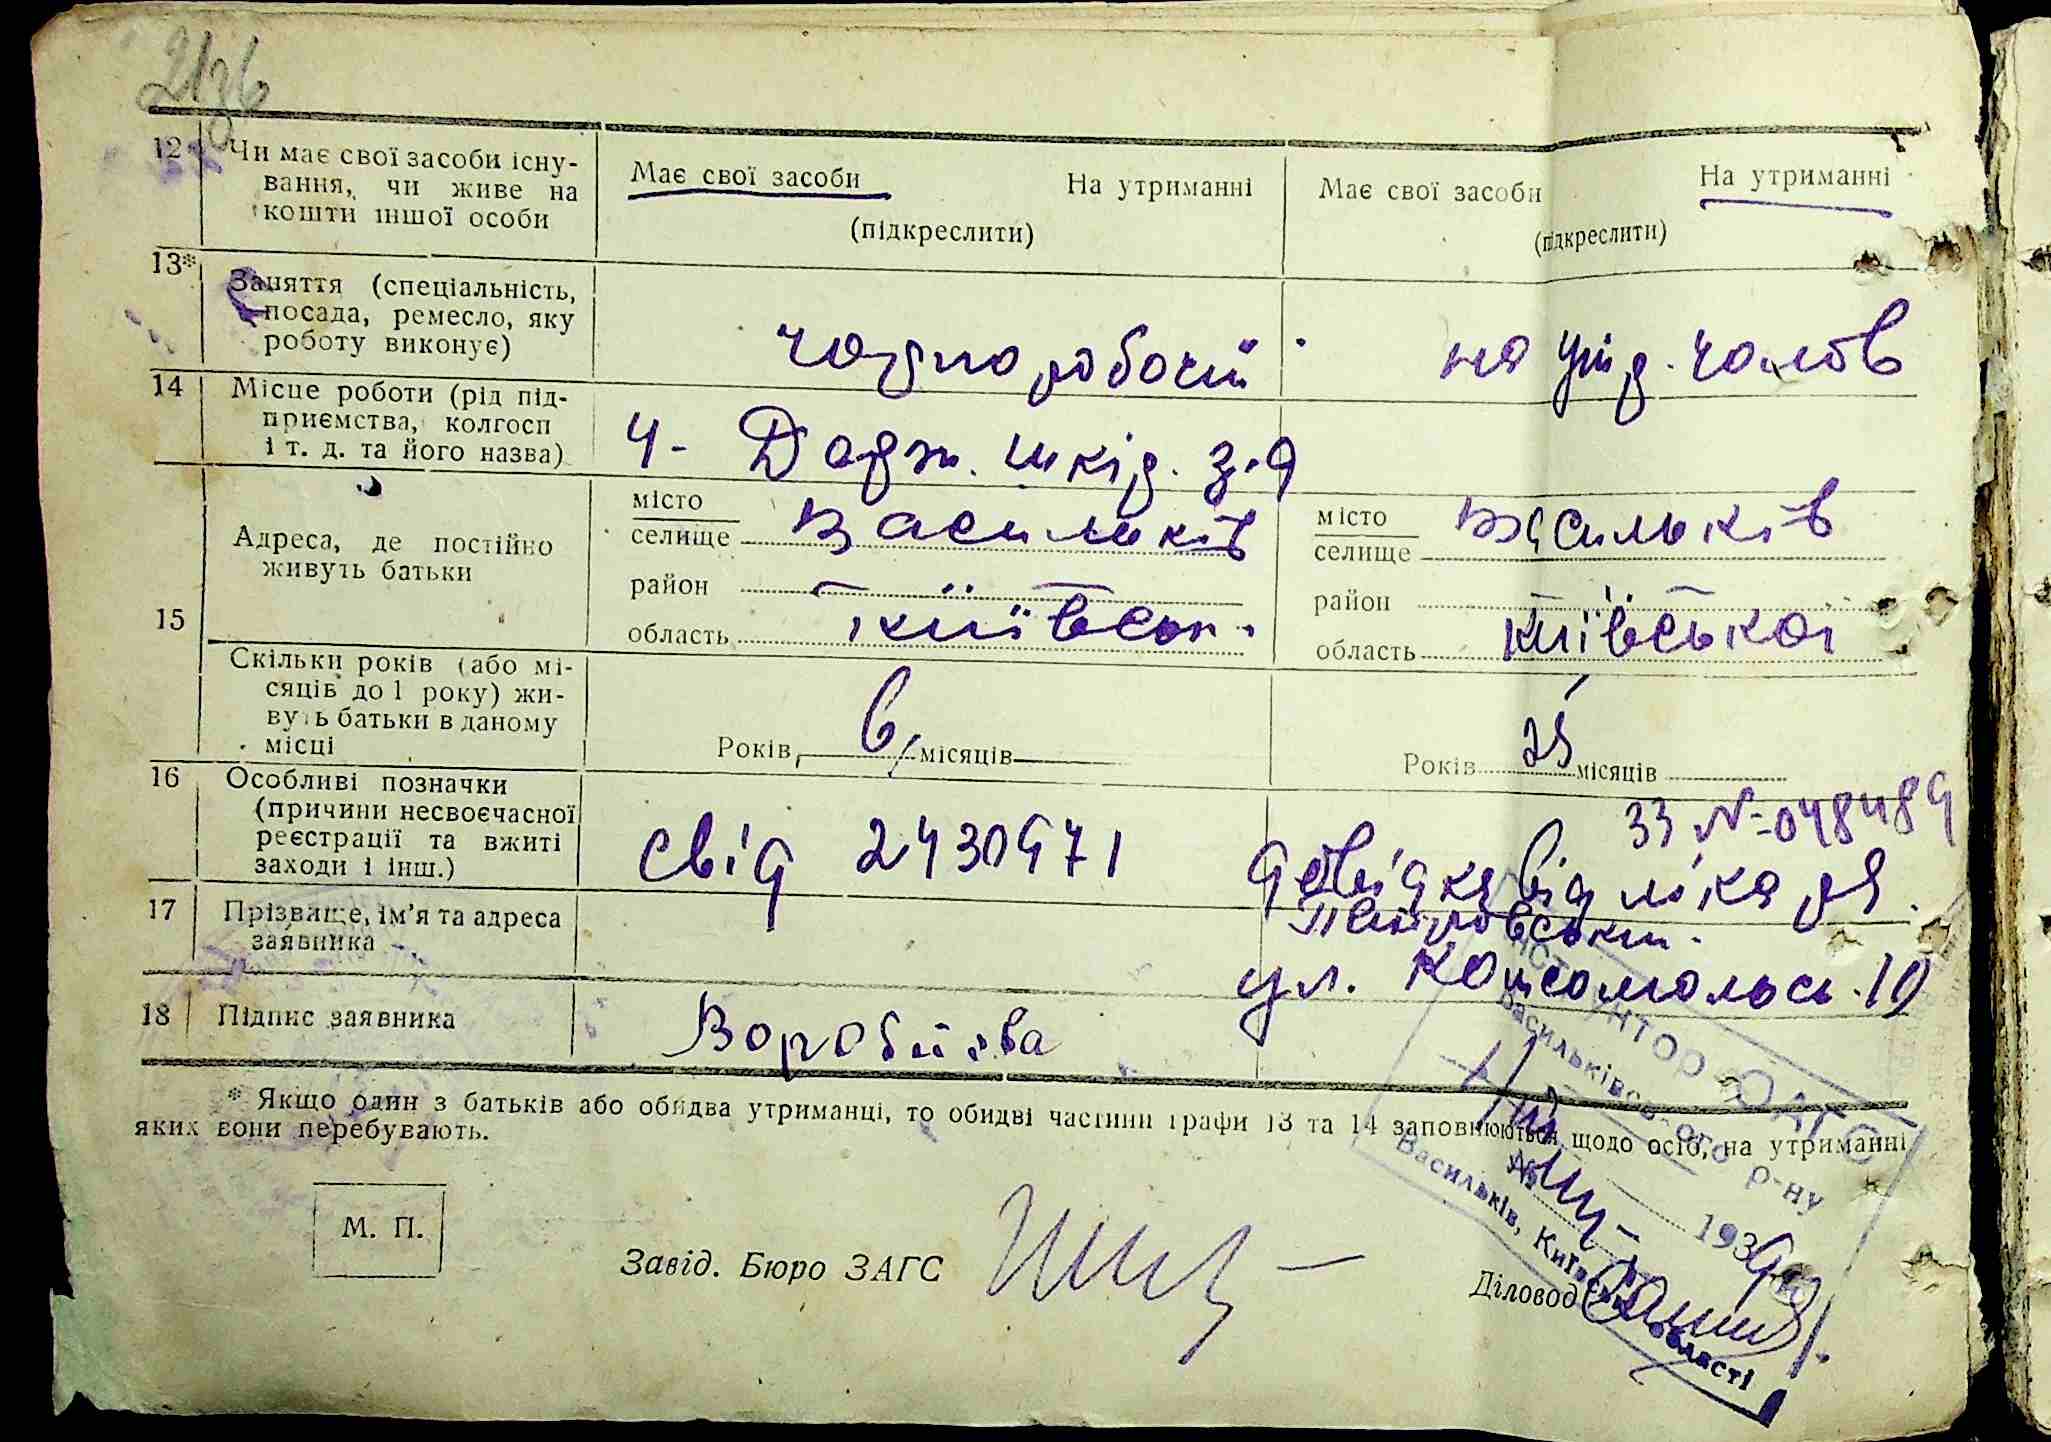 12 Чи має свої засоби існу-
вання, чи живе на
кошти іншої особи
Має свої засоби На утриманні
(підкреслити)
Має свої засоби На утриманні
(підкреслити)
13* Заняття (спеціальність,
посада, ремесло, яку
роботу виконує)
чорноробочий
на утр. чолов
14 Місце роботи (рід під-
приємства, колгосп
і т. д. та його назва)
4- Держ. шкір. з-д
15 Адреса, де постійно
живуть батьки
місто
селище Васильків
район
область Київськ.
місто
селище Васильків
район
область Київської
Скільки років (або мі-
сяців до 1 року) жи-
вуть батьки в даному
місці
Років 6 місяців
Років 25 місяців
16 Особливі позначки
(причини несвоєчасної
реєстрації та вжиті
заходи і інш.)
свід 2430971
33 № 048489
довідка від лікаря
17 Прізвище, ім'я та адреса
заявника
ул. Комсомольск. 10
18 Підпис заявника
Воробйова
* Якщо один з батьків або обидва утриманці, то обидві частини графи 13 та 14 заповнюються щодо осіб, на утриманні
яких вони перебувають.
М. П.
Завід. Бюро ЗАГС
Діловод
ЗАГС
Васильківського р-ну
№
1939
Васильків, Київської області